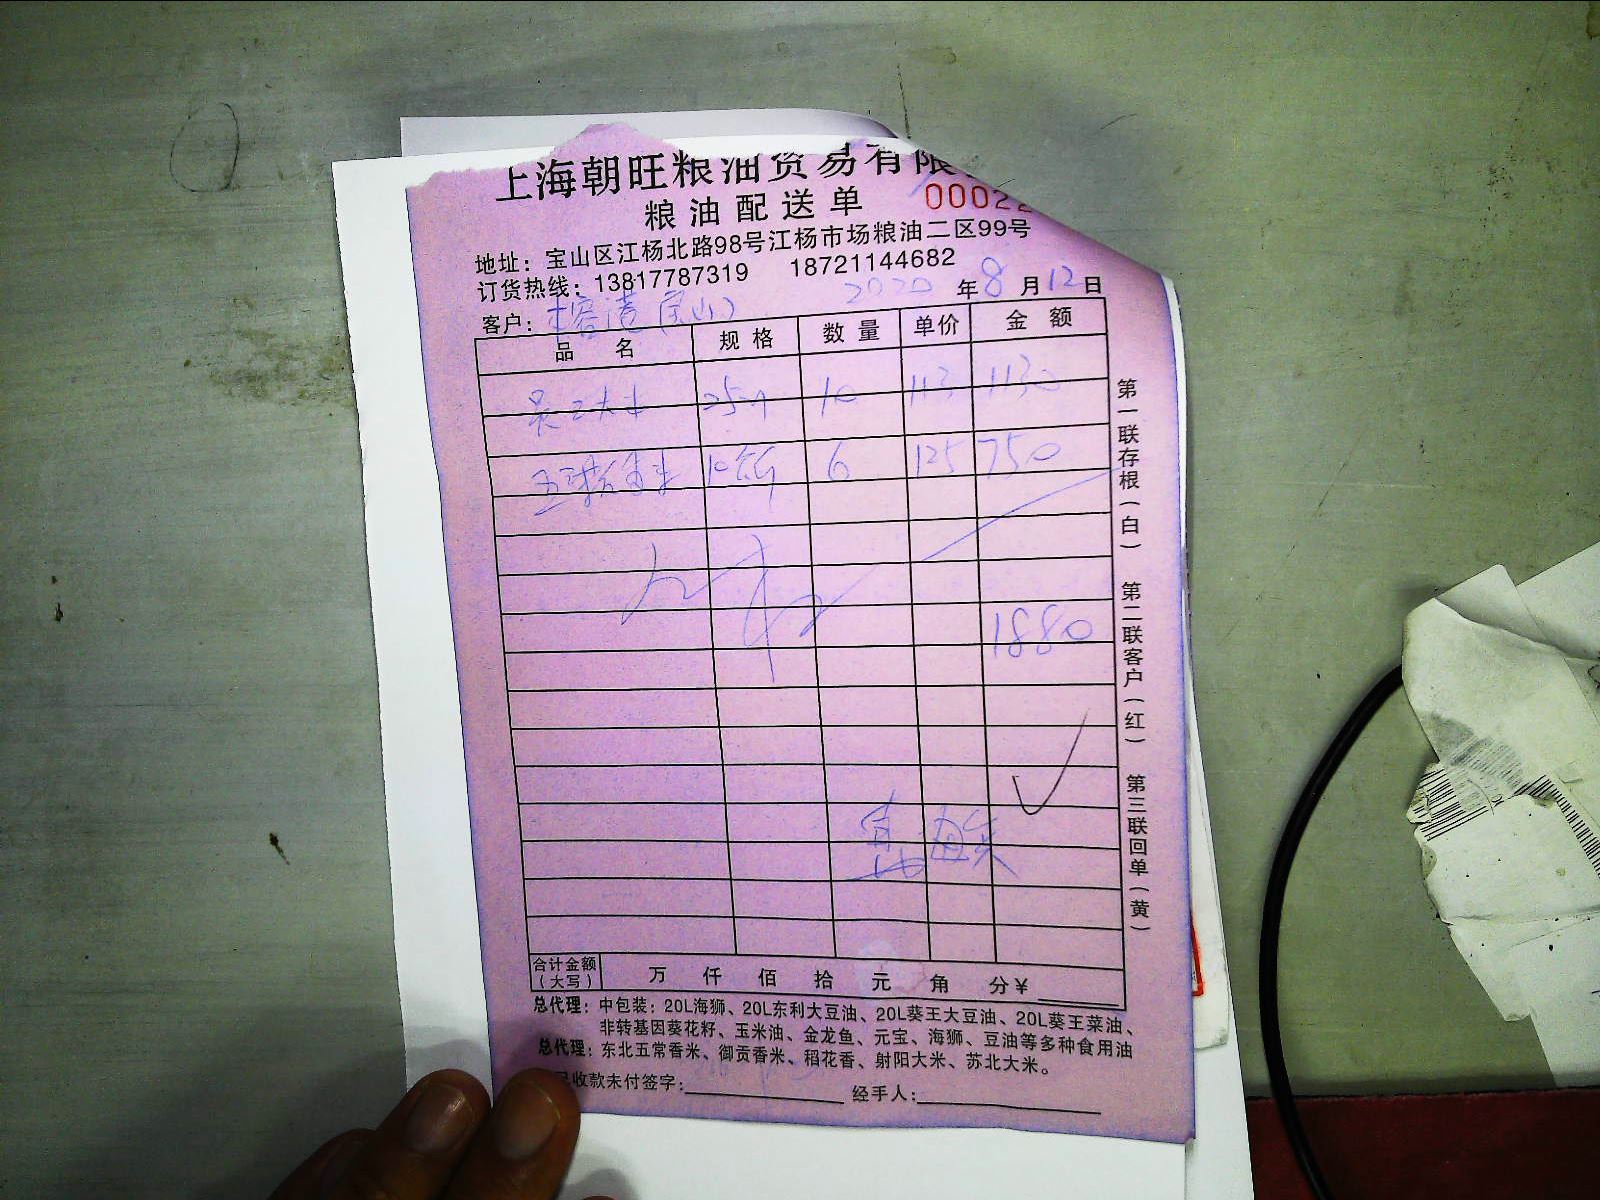 上海朝旺粮油贸易有限
粮油配送单 00022
地址：宝山区江杨北路98号江杨市场粮油二区99号
订货热线：13817787319 18721144682
2020年8月12日
客户：榕港（宝山）
品名 规格 数量 单价 金额
大米 10 113 1130
6 125 750
1880
合计金额（大写） 万 仟 佰 拾 元 角 分¥
总代理：中包装：20L海狮、20L东利大豆油、20L葵王大豆油、20L葵王菜油、
非转基因葵花籽、玉米油、金龙鱼、元宝、海狮、豆油等多种食用油
总代理：东北五常香米、御贡香米、稻花香、射阳大米、苏北大米。
收款未付签字： 经手人：
第一联存根（白） 第二联客户（红） 第三联回单（黄）